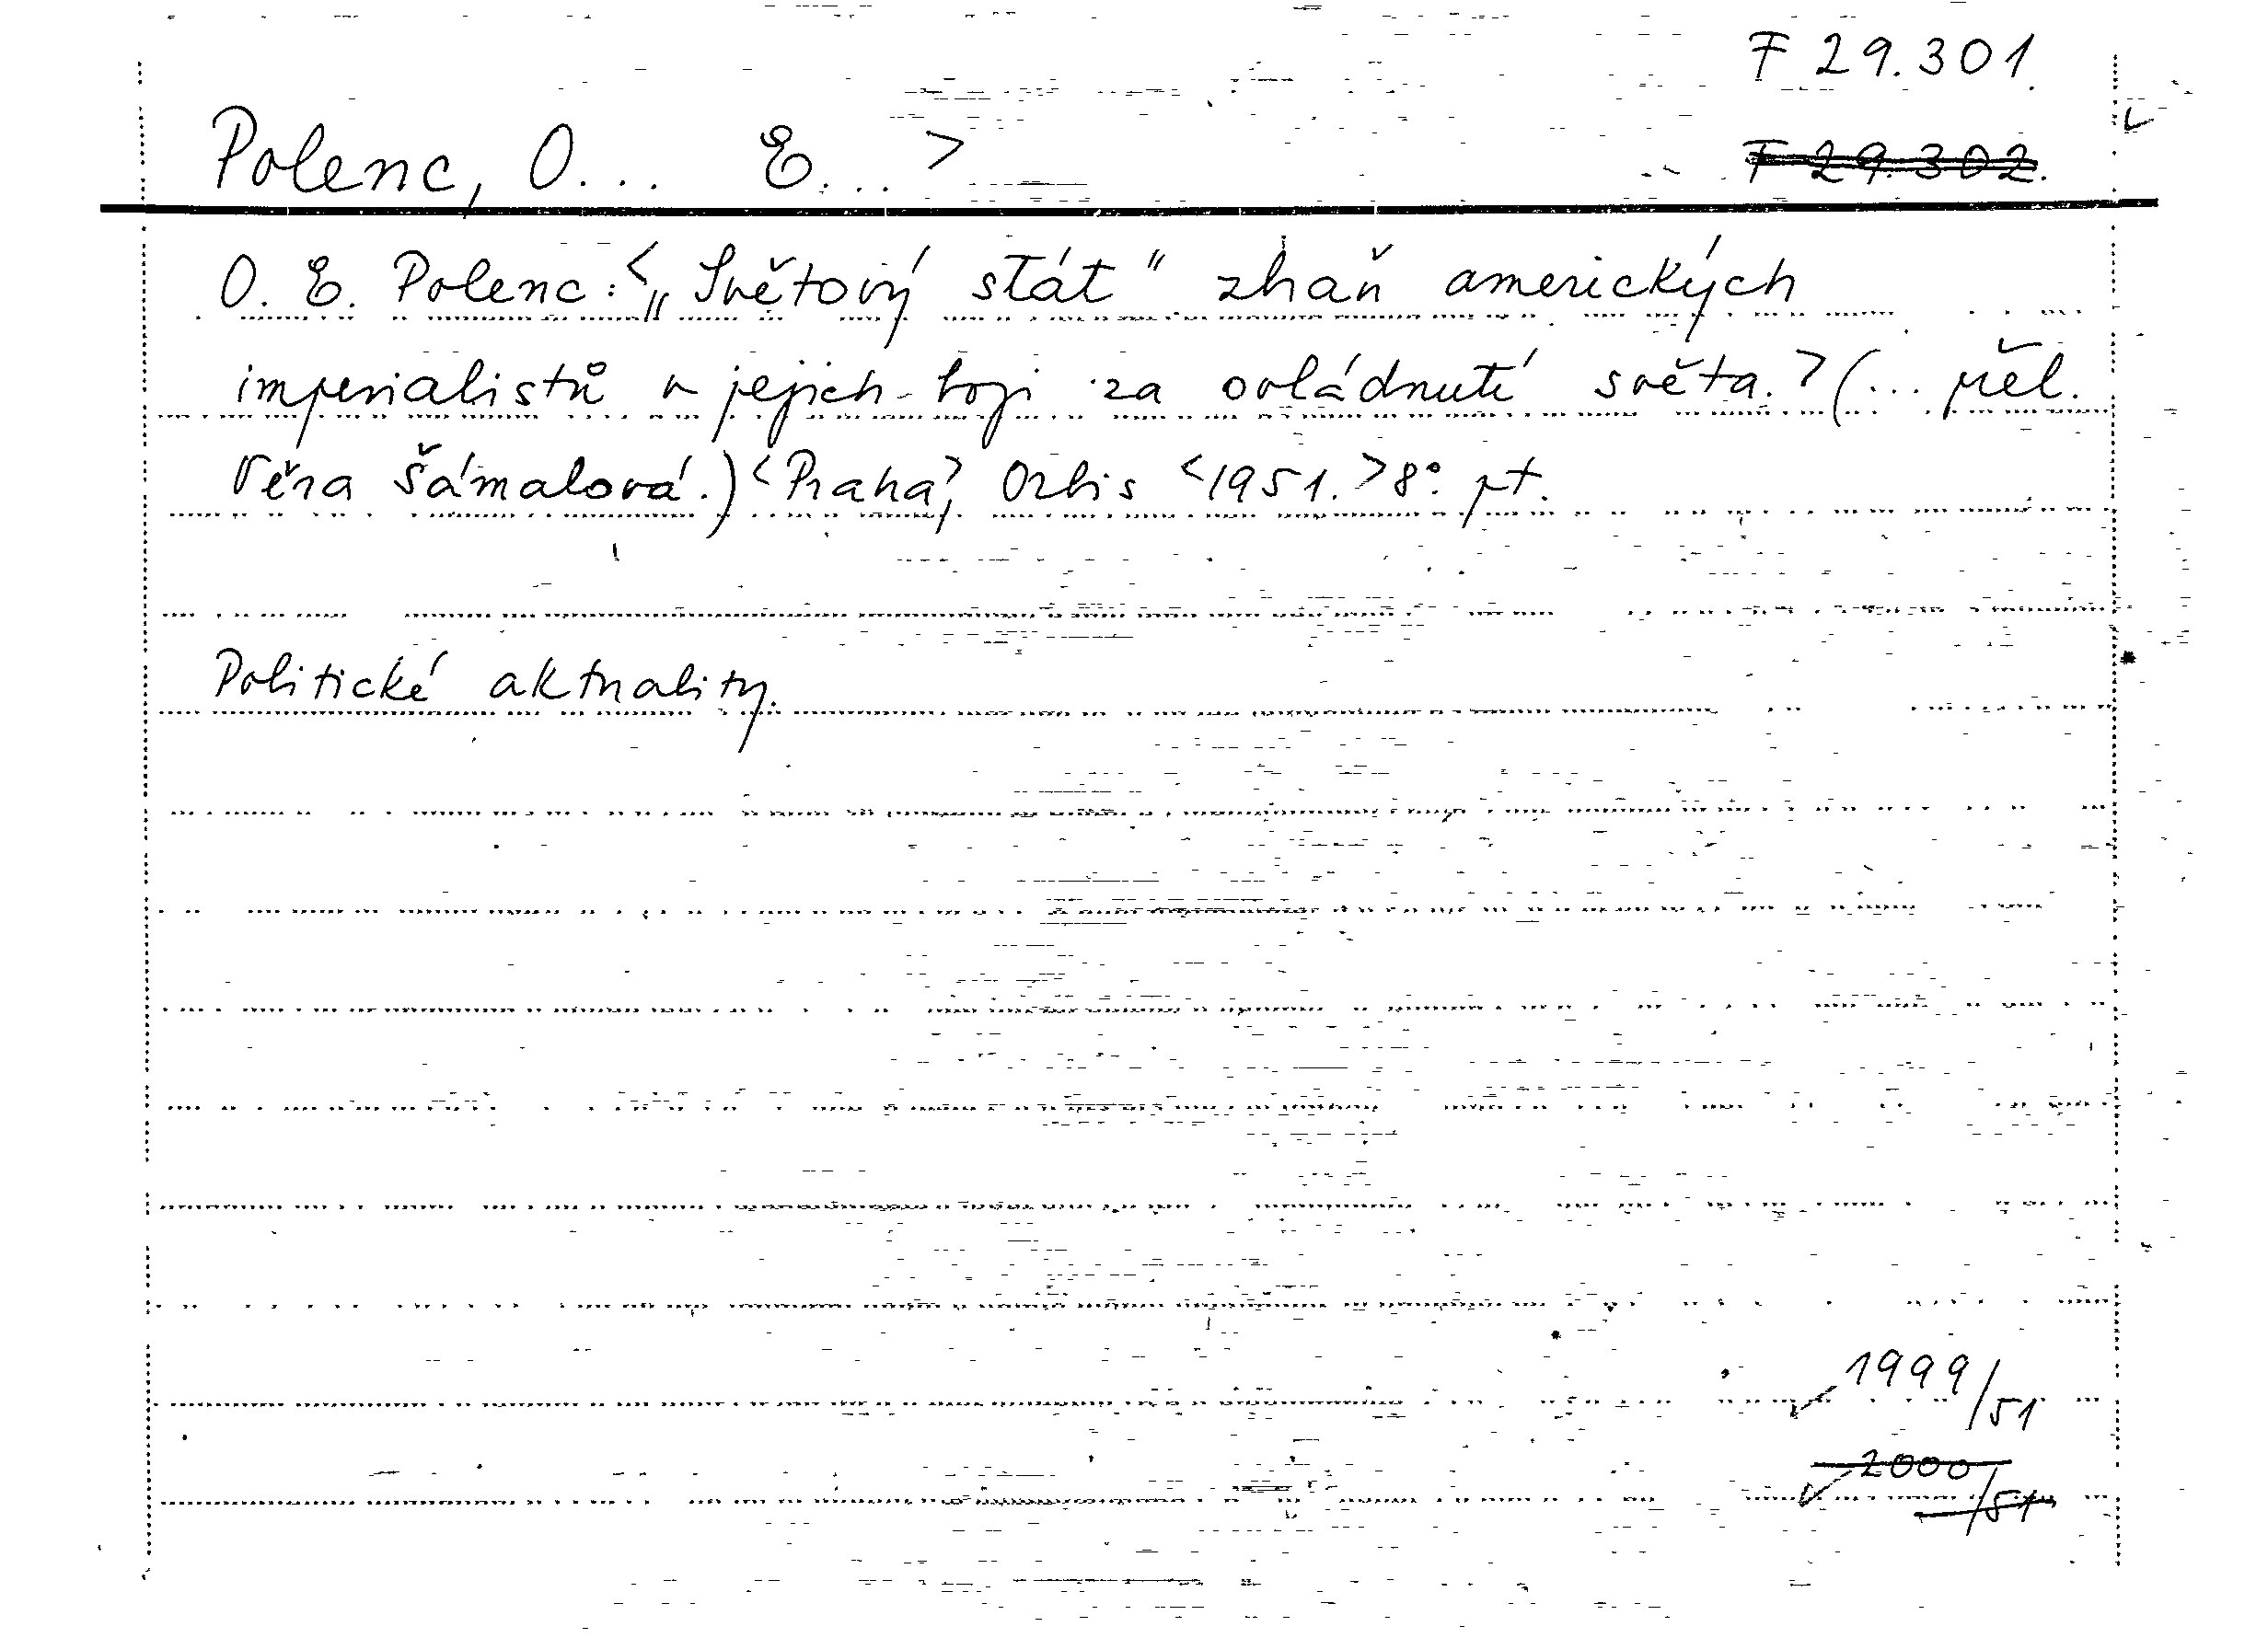 F 29.301
Polenc, O... E... >
F 29.302.
O. E. Polenc: < „Světový stát" zbraň amerických
imperialistů v jejich boji za ovládnutí světa. > (... přel.
Věra Šámalová.) < Praha, > Orbis < 1951. > 8°. pt.
Politické aktuality.
1999/51
2000/51